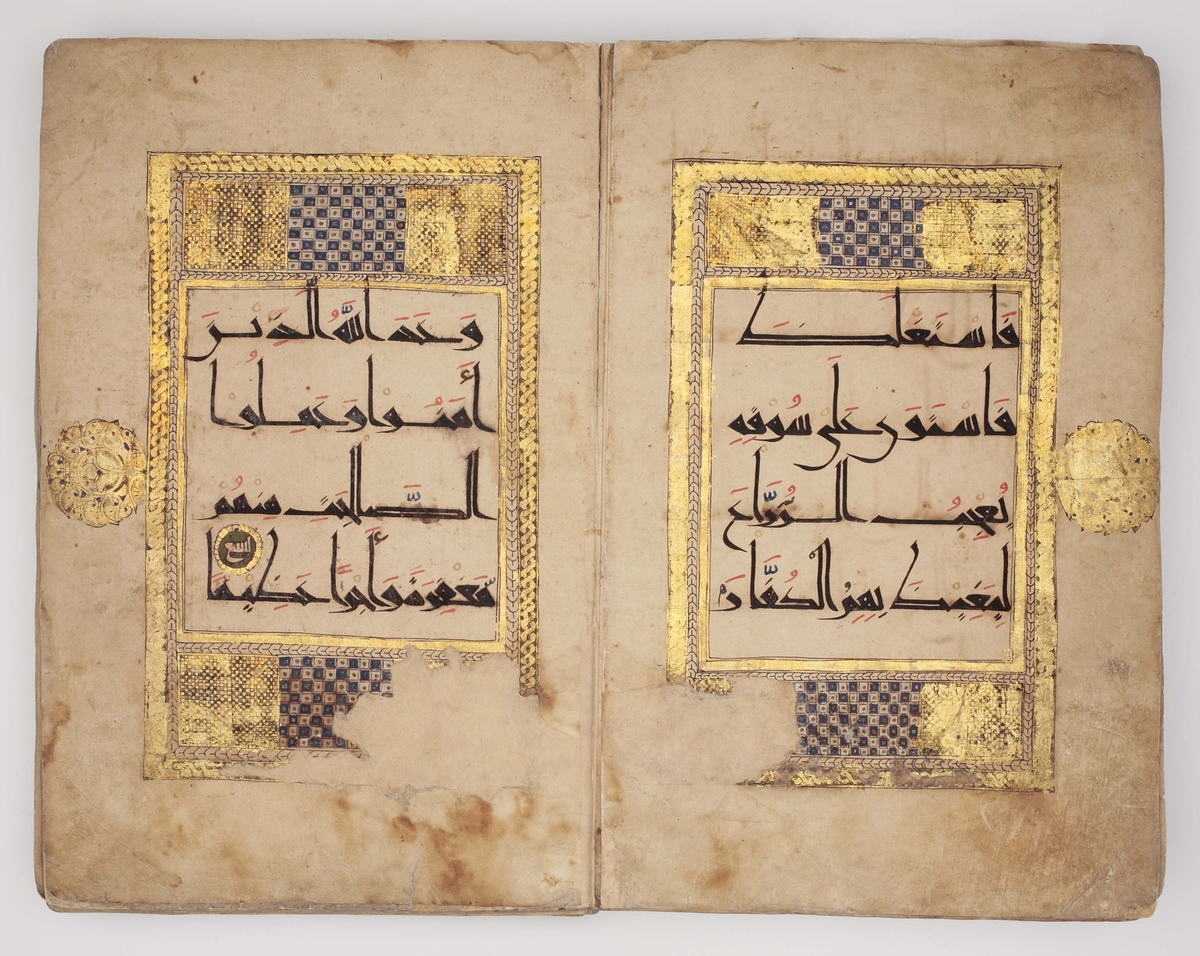 فَاسْتَغْلَظَ
فَاسْتَوَى عَلَى سُوقِهِ
يُعْجِبُ الزُّرَّاعَ
لِيَغِيظَ بِهِمُ الْكُفَّارَ
وَعَدَ اللَّهُ الَّذِينَ
أَمَنُوا وَعَمِلُوا
الصَّلِحَتِ مِنْهُمْ
مَّغْفِرَةً وَأَجْرًا عَظِيمًا